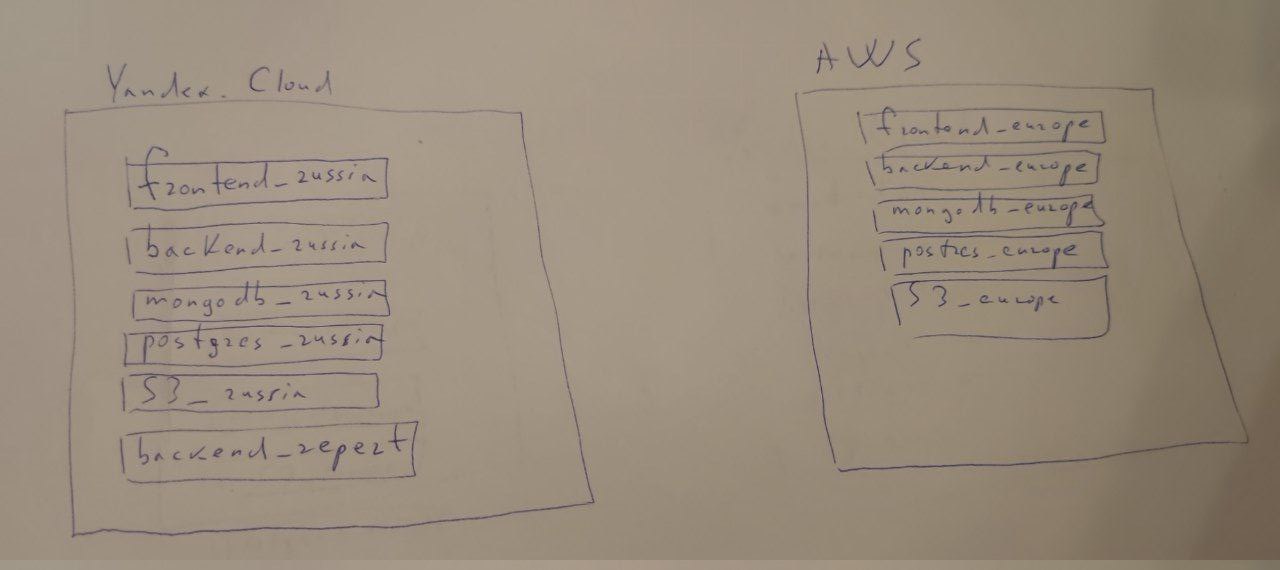 Yandex. Cloud
frontend_russia
backend_russia
mongodb_russia
postgres_russia
S3_russia
backend_repert
AWS
frontend_europe
backend_europe
mongodb_europe
postres_europe
S3_europe